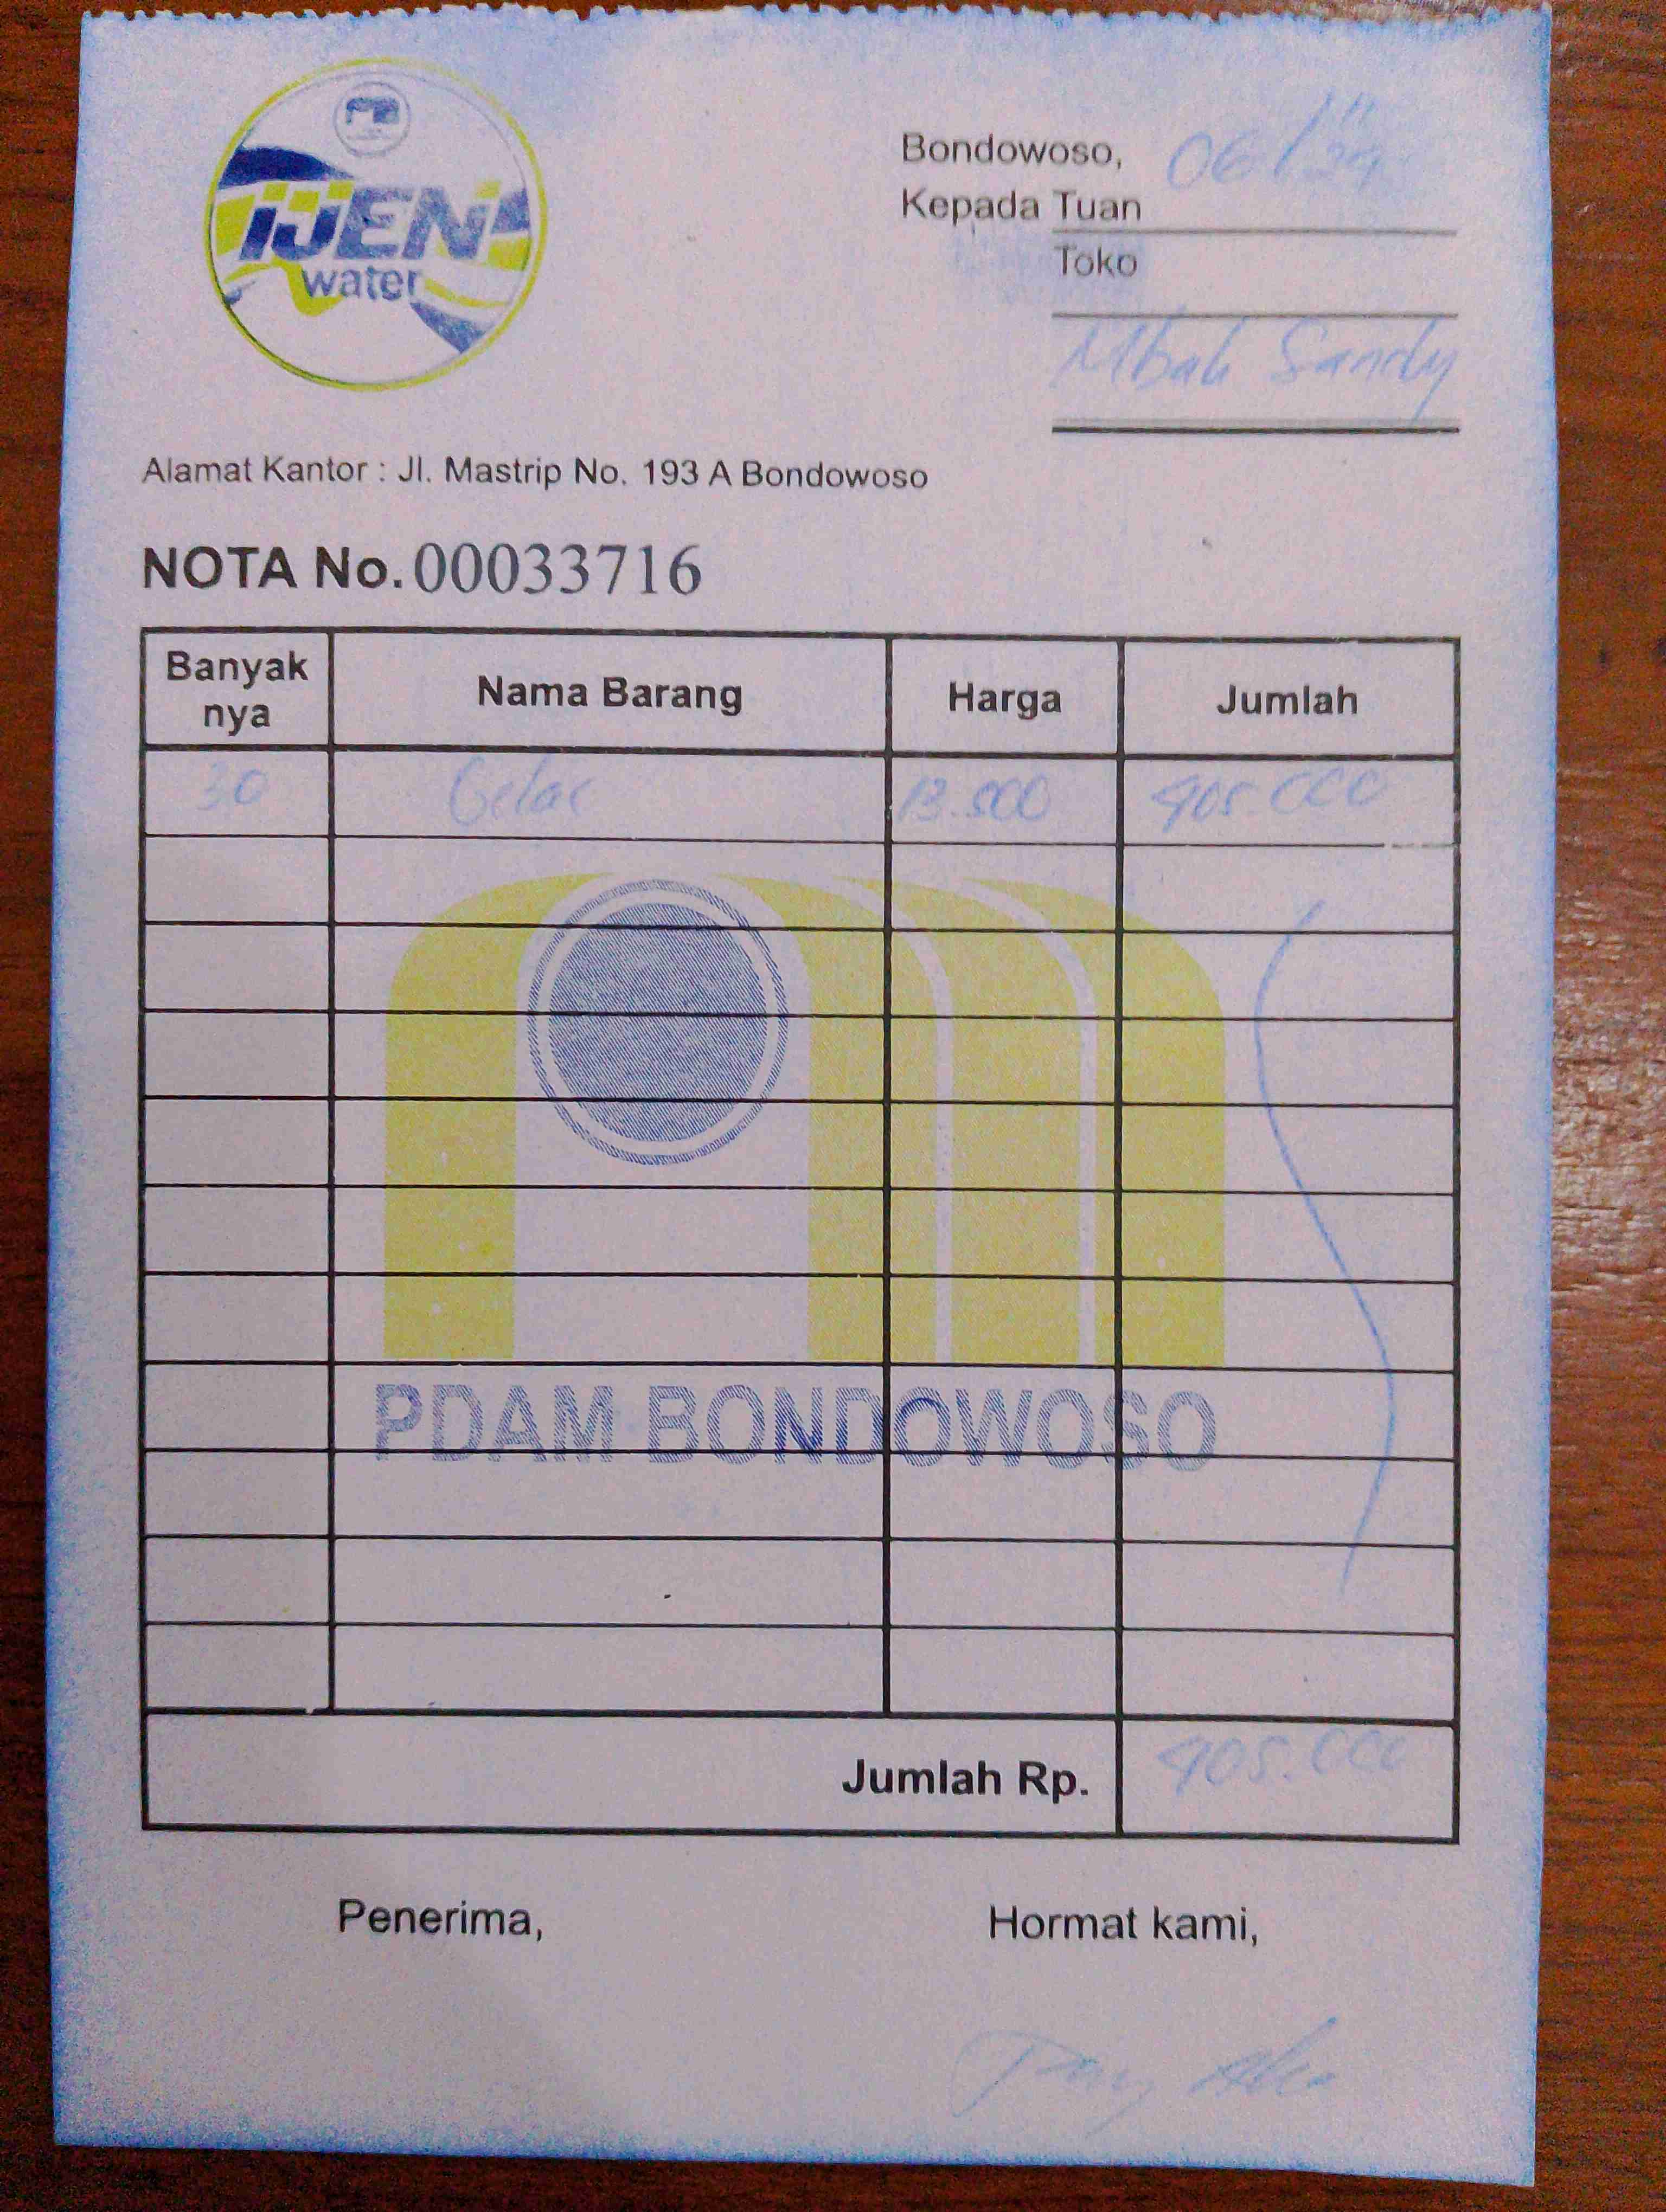 IJEN
water
Bondowoso, 06/11/24
Kepada Tuan
Toko
Mbak Sandy
Alamat Kantor : Jl. Mastrip No. 193 A Bondowoso
NOTA No. 00033716
Banyak nya Nama Barang Harga Jumlah
30 Gelas 13.500 405.000
PDAM BONDOWOSO
Jumlah Rp. 405.000
Penerima, Hormat kami,